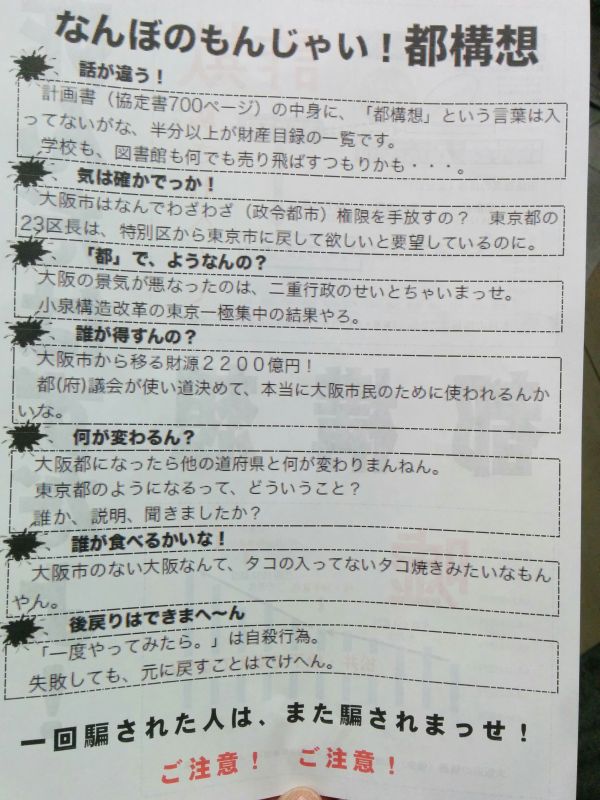 なんぼのもんじゃい！都構想
話が違う！
計画書（協定書700ページ）の中身に、「都構想」という言葉は入
ってないがな、半分以上が財産目録の一覧です。
学校も、図書館も何でも売り飛ばすつもりかも・・・。
気は確かでっか！
大阪市はなんでわざわざ（政令都市）権限を手放すの？　東京都の
23区長は、特別区から東京市に戻して欲しいと要望しているのに。
「都」で、ようなんの？
大阪の景気が悪なったのは、二重行政のせいとちゃいまっせ。
小泉構造改革の東京一極集中の結果やろ。
誰が得すんの？
大阪市から移る財源２２００億円！
都(府)議会が使い道決めて、本当に大阪市民のために使われるんか
いな。
何が変わるん？
大阪都になったら他の道府県と何が変わりまんねん。
東京都のようになるって、どういうこと？
誰か、説明、聞きましたか？
誰が食べるかいな！
大阪市のない大阪なんて、タコの入ってないタコ焼きみたいなもん
やん。
後戻りはできまへ〜ん
「一度やってみたら。」は自殺行為。
失敗しても、元に戻すことはでけへん。
一回騙された人は、また騙されまっせ！
ご注意！　ご注意！